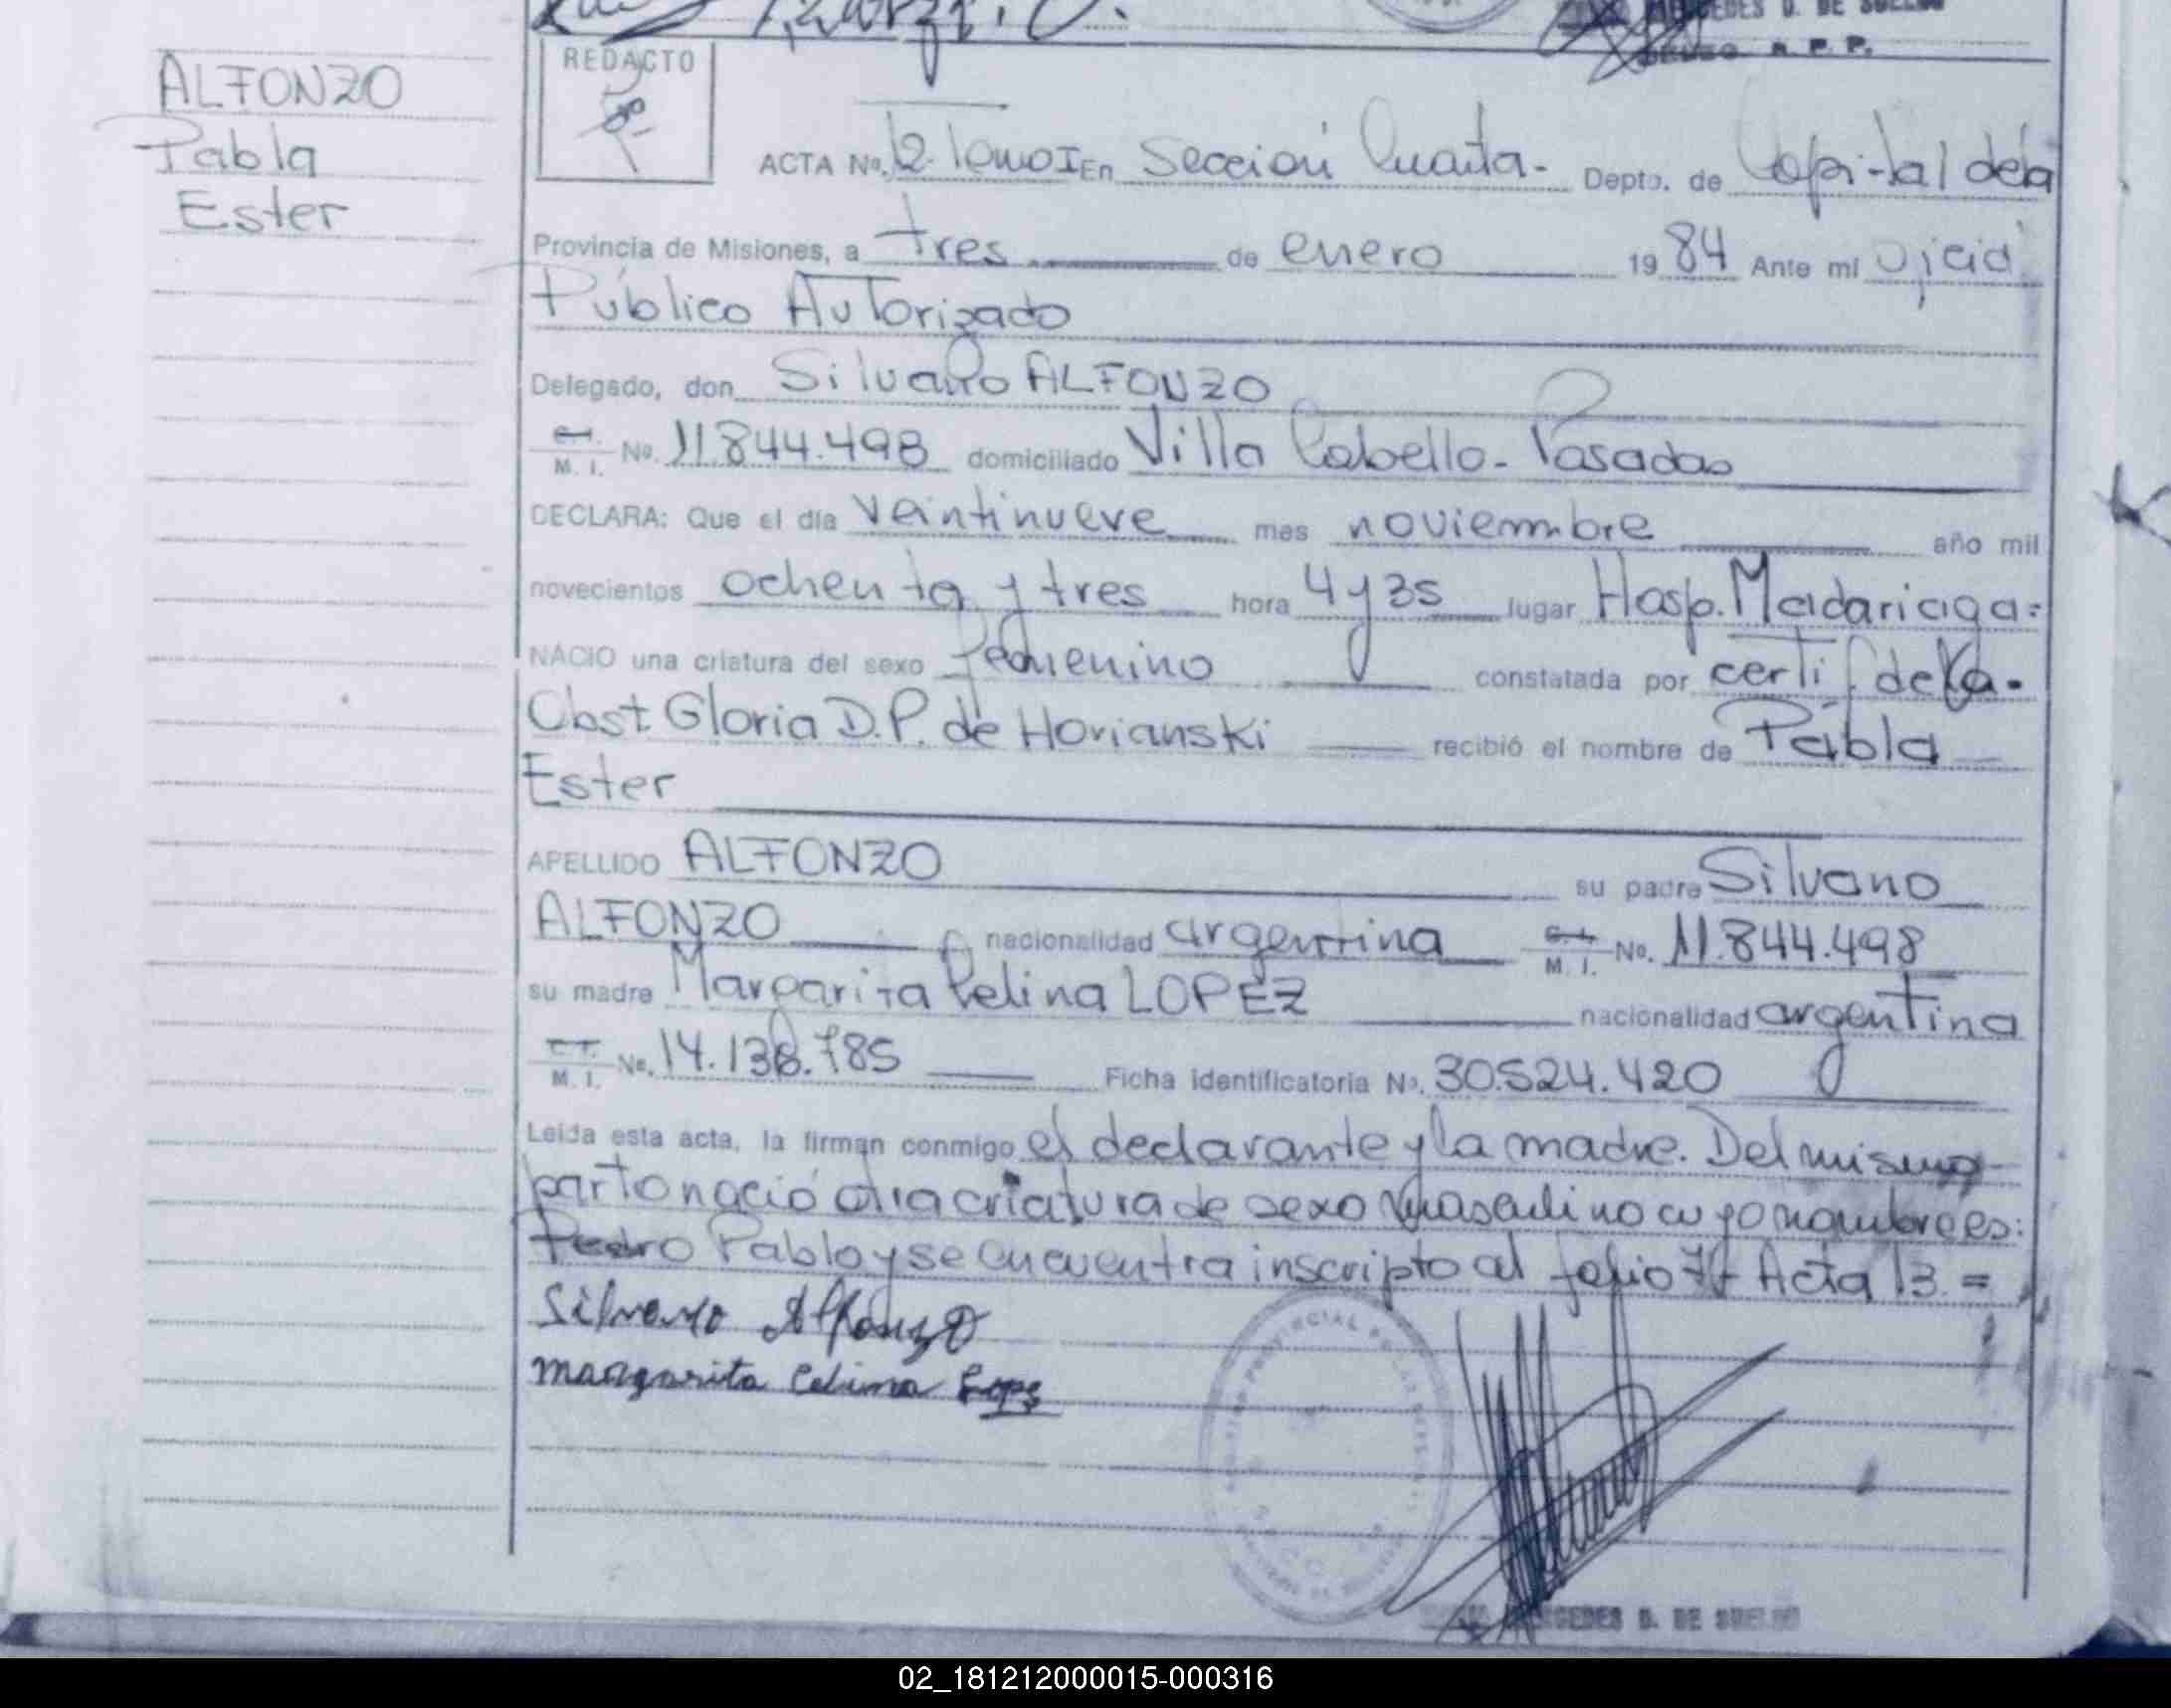 ALFONZO
Pabla
Ester
MERCEDES D. DE SUELDO
R. P. P.
REDACTO
ACTA No. 12 Tomo I En Sección Cuarta - Depto. de Capital de la
Provincia de Misiones, a tres de enero 1984 Ante mi Oficial
Público Autorizado
Delegado, don Silvano ALFONZO
C.I. M. I. No. 11.844.498 domiciliado Villa Cabello - Posadas
DECLARA: Que el día veintinueve mes noviembre año mil
novecientos ochenta y tres hora 4 y 35 lugar Hosp. Madariaga =
NACIO una criatura del sexo femenino constatada por certif de la
Obst Gloria D.P. de Horianski recibió el nombre de Pabla
Ester
APELLIDO ALFONZO su padre Silvano
ALFONZO nacionalidad argentina C.I. M. I. No. 11.844.498
su madre Margarita Celina LOPEZ nacionalidad argentina
C.I. M. I. No. 14.138.785 Ficha identificatoria No. 30.524.420
Leida esta acta, la firman conmigo el declarante y la madre. Del mismo
parto nació otra criatura de sexo masculino cuyo nombre es:
Pedro Pablo y se encuentra inscripto al folio Acta 13. =
Silvano Alfonzo
margarita Celina Lopes
MERCEDES D. DE SUELDO
02_181212000015-000316